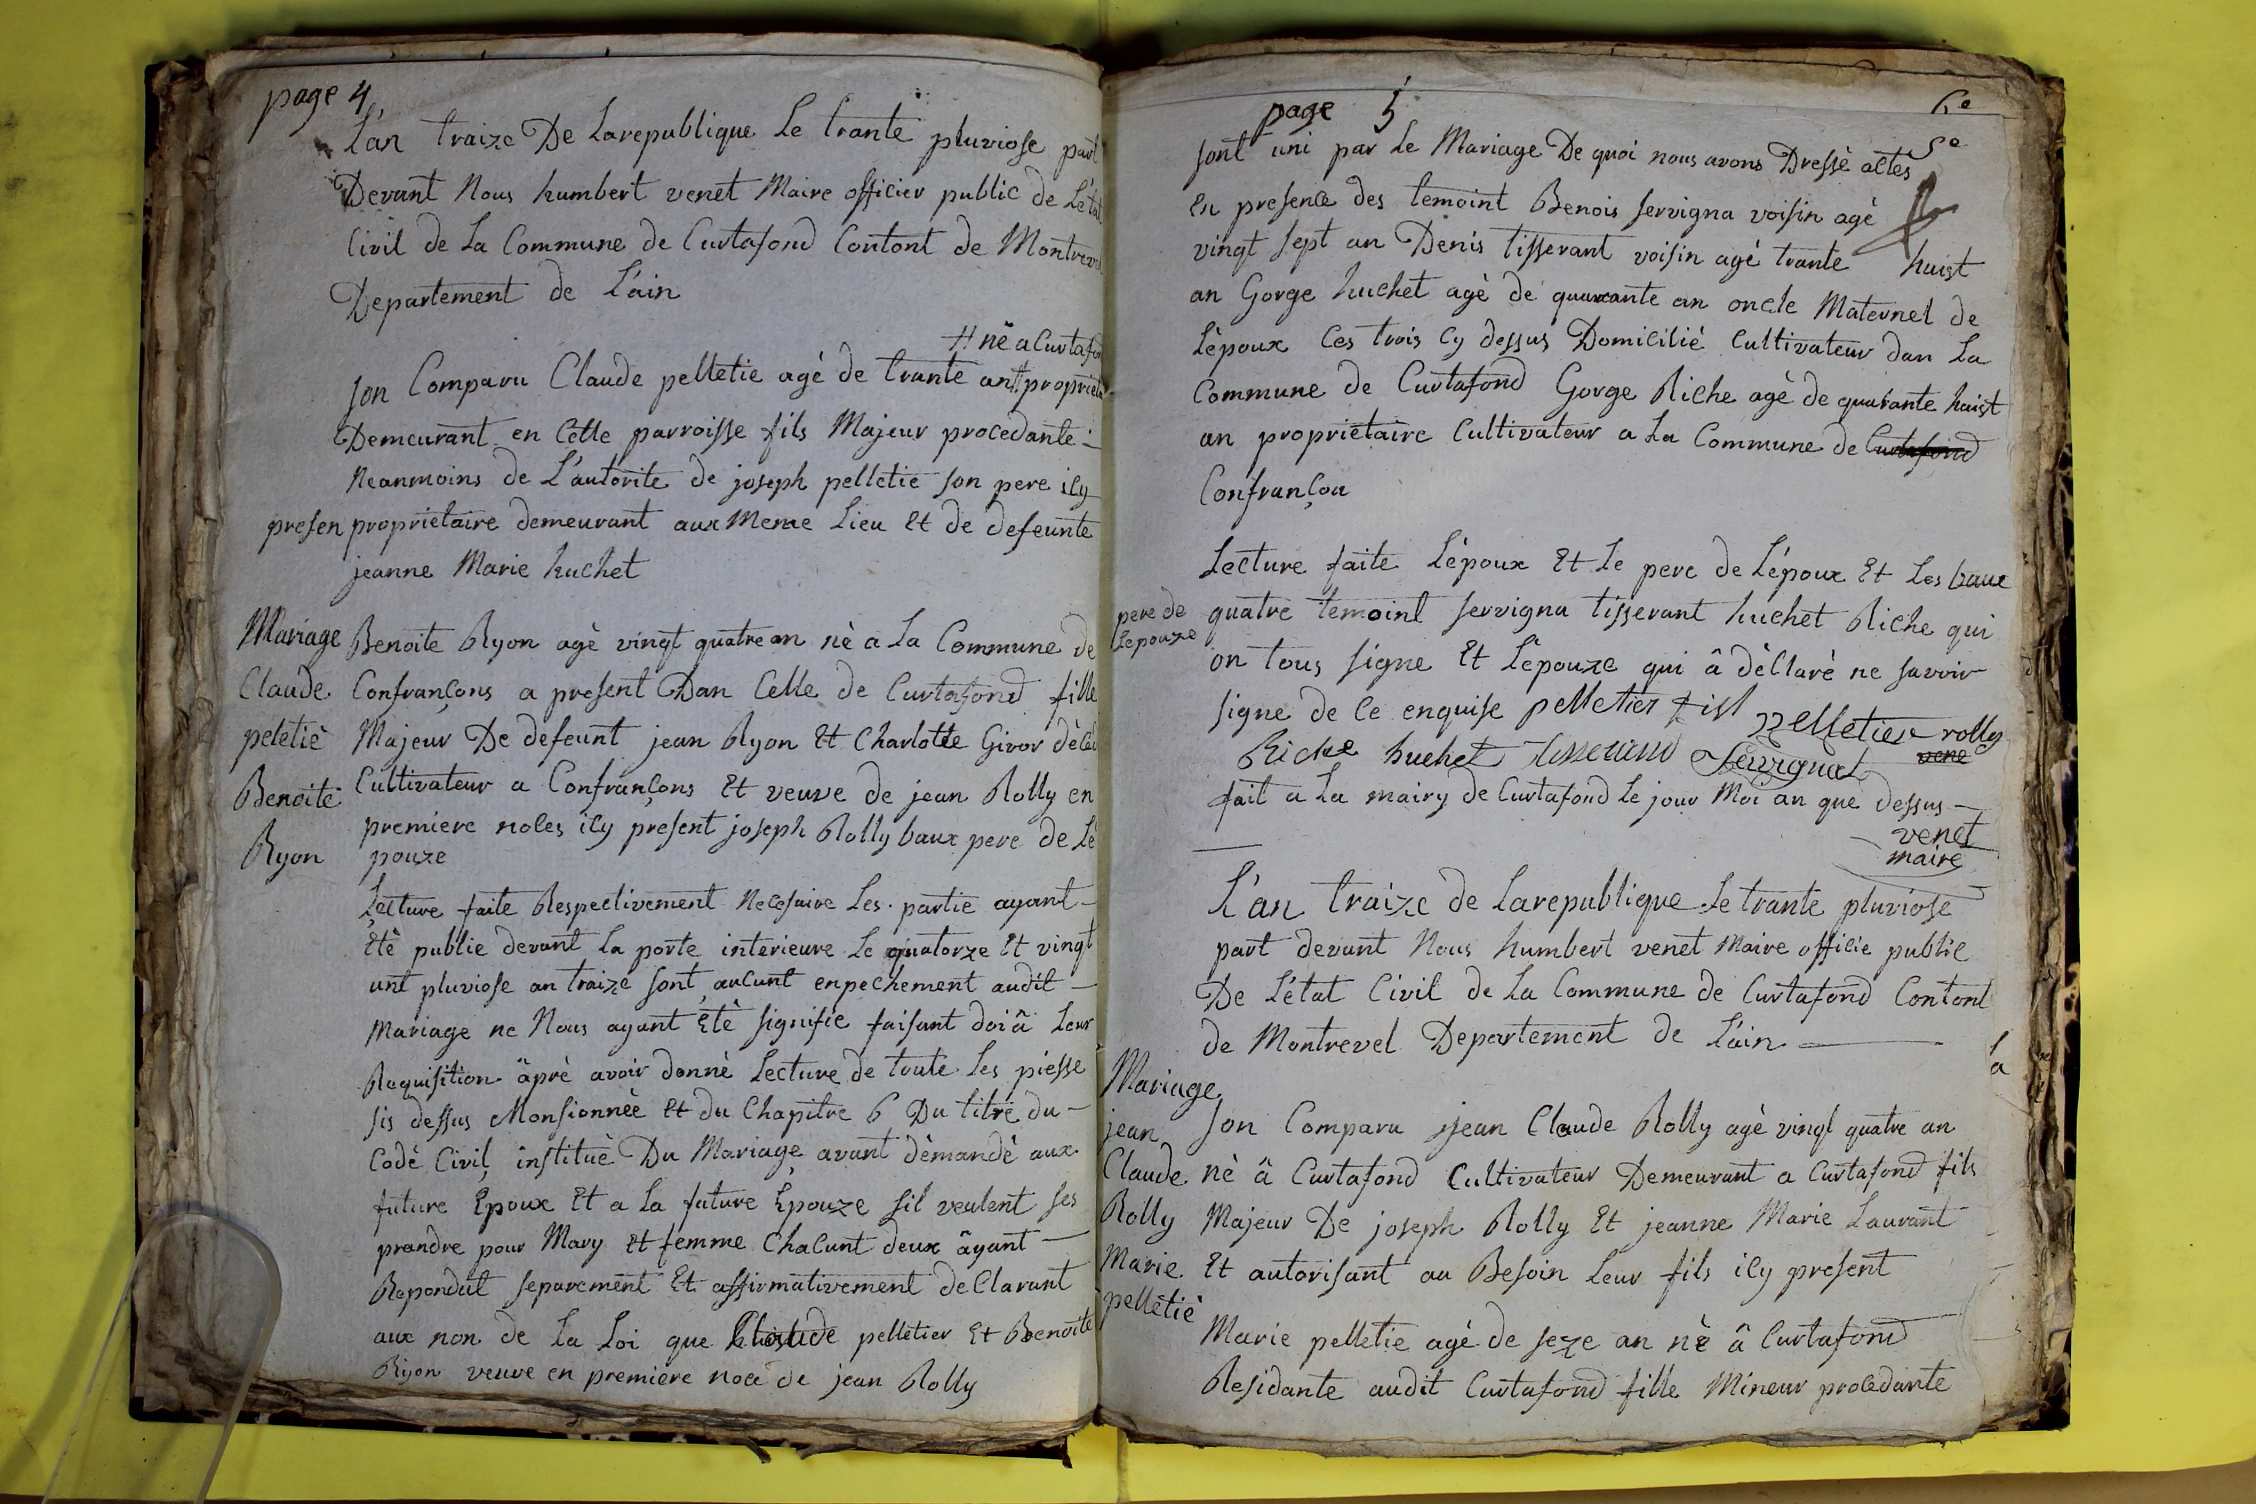 page 4
L'an traize De Larepublique Le trante pluviose part
Devant Nous humbert venet Maire officier public de L'état
Civil de La Commune de Curtafond Contont de Montrevel
Departement de L'ain
# né a Curtafond
Son Comparu Claude pelletie agè de trante an # proprietaire
Demeurant en Cette parroisse fils Majeur procedante
Neanmoins de L'autorite de joseph pelletie son pere icy
presen proprietaire demeurant aux Meme Lieu Et de defeunte
jeanne Marie huchet
Mariage
Claude
peletiè
Benoite
Ryon
Benoite Ryon agè vingt quatre an nè a La Commune de
Confrançons a present Dan Celle de Curtafond fille
Majeur De defeunt jean Ryon Et Charlotte Givor
Cultivateur a Confrançons Et veuve de jean Rolly en
premiere noces icy present joseph Rolly baux pere de Lé
pouze
Lecture faite Respectivement Necesaire Les partie ayant
Etè publie devant La porte interieure Le quatorze Et vingt
unt pluviose an traize sont aucunt enpechement audit
Mariage ne Nous ayant Etè signifie faisant doiâ Leur
Requisition âprè avoir donnè Lecture de toute Les piesse
sis dessus Monsionnèe et du Chapitre 6 Du titre du
Codè Civil instituè Du Mariage avant dèmandè aux
future Epoux Et a La future Epouze sil veulent ses
prandre pour Mary et femme Chacunt deux âyant
Repondut separement Et affirmativement deClarant
aux non de La Loi que Claude pelletier Et Benoite
Rijon veuve en premiere noce de jean Rolly
page 5
5e
sont uni par Le Mariage De quoi nous avons Dressè actes
En presence des temoint Benois servigna voisin agè
vingt sept an Denis tisserant voisin agè trante huist
an Gorge huchet agè de quarante an oncle Maternel de
Lèpoux Ces trois Cy dessus Domiciliè Cultivateur dan La
Commune de Curtafond Gorge Riche agè de quarante huist
an proprietaire Cultivateur a La Commune de Curtafond
Confrançon
Lecture faite L'èpoux Et Le pere de L'èpoux Et Les baux
pere de
Lepouze
quatre temoint servigna tisserant huchet Riche qui
on tous signe Et Lèpouze qui â dèClarè ne savoir
signe de Ce enquise pelletier fisl
pelletier rolly
Riche huchet tisserand Servignat vene
fait a La mairy de Curtafond Le jour Moi an que dessus
venet
maire
L'an traize de Larepublique Le trante pluviose
part devant Nous humbert venet Maire officie public
De L'ètat Civil de La Commune de Curtafond Contont
de Montrevel Departement de L'ain
Mariage
jean
Claude
Rolly
Marie
pelletiè
Son Comparu jean Claude Rolly agè vingt quatre an
nè â Curtafond Cultivateur Demeurant a Curtafond fils
Majeur De joseph Rolly Et jeanne Marie Laurant
Et autorisant au Besoin Leur fils icy present
Marie pelletie agè de seze an nè â Curtafond
Residante audit Curtafond fille Mineur procedante